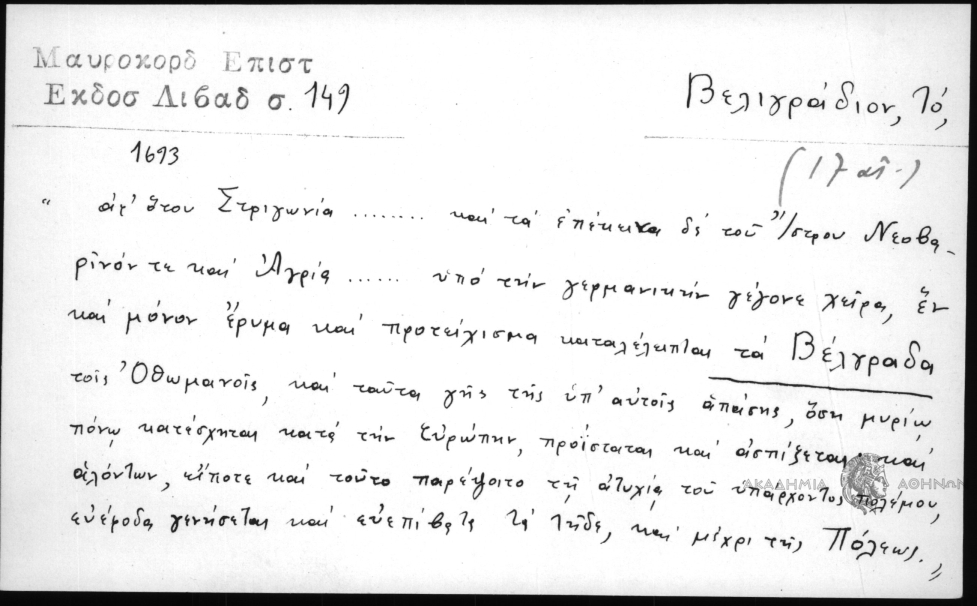 Μαυροκορδ Επιστ
Εκδοσ Λιβαδ σ. 149
Βελιγράδιον, τό,
1693
(17 αἰ.)
" ἀφ' ὅτου Στριγωνία ........ καί τά ἐπέκεινα δέ τοῦ Ἴστρου Νεοβα-
ρῖνόν τε καί Ἀγρία ...... ὑπό τήν γερμανικήν γέγονε χεῖρα, ἕν
καί μόνον ἔρυμα καί προτείχισμα καταλέλειπται τά Βέλγραδα
τοῖς Ὀθωμανοῖς, καί ταῦτα γῆς τῆς ὑπ' αὐτοῖς ἁπάσης, ὅση μυρίῳ
πόνῳ κατέσχηται κατά τήν Εὐρώπην, προΐσταται καί ἀσπίζεται· καί
ἁλόντων, εἴποτε καί τοῦτο παρέψοιτο τῇ ἀτυχίᾳ τοῦ ὑπάρχοντος πολέμου,
εὐέφοδα γενήσεται καί εὐεπίβατα τά τῇδε, καί μέχρι τῆς Πόλεως. "
ΑΚΑΔΗΜΙΑ ΑΘΗΝΩΝ